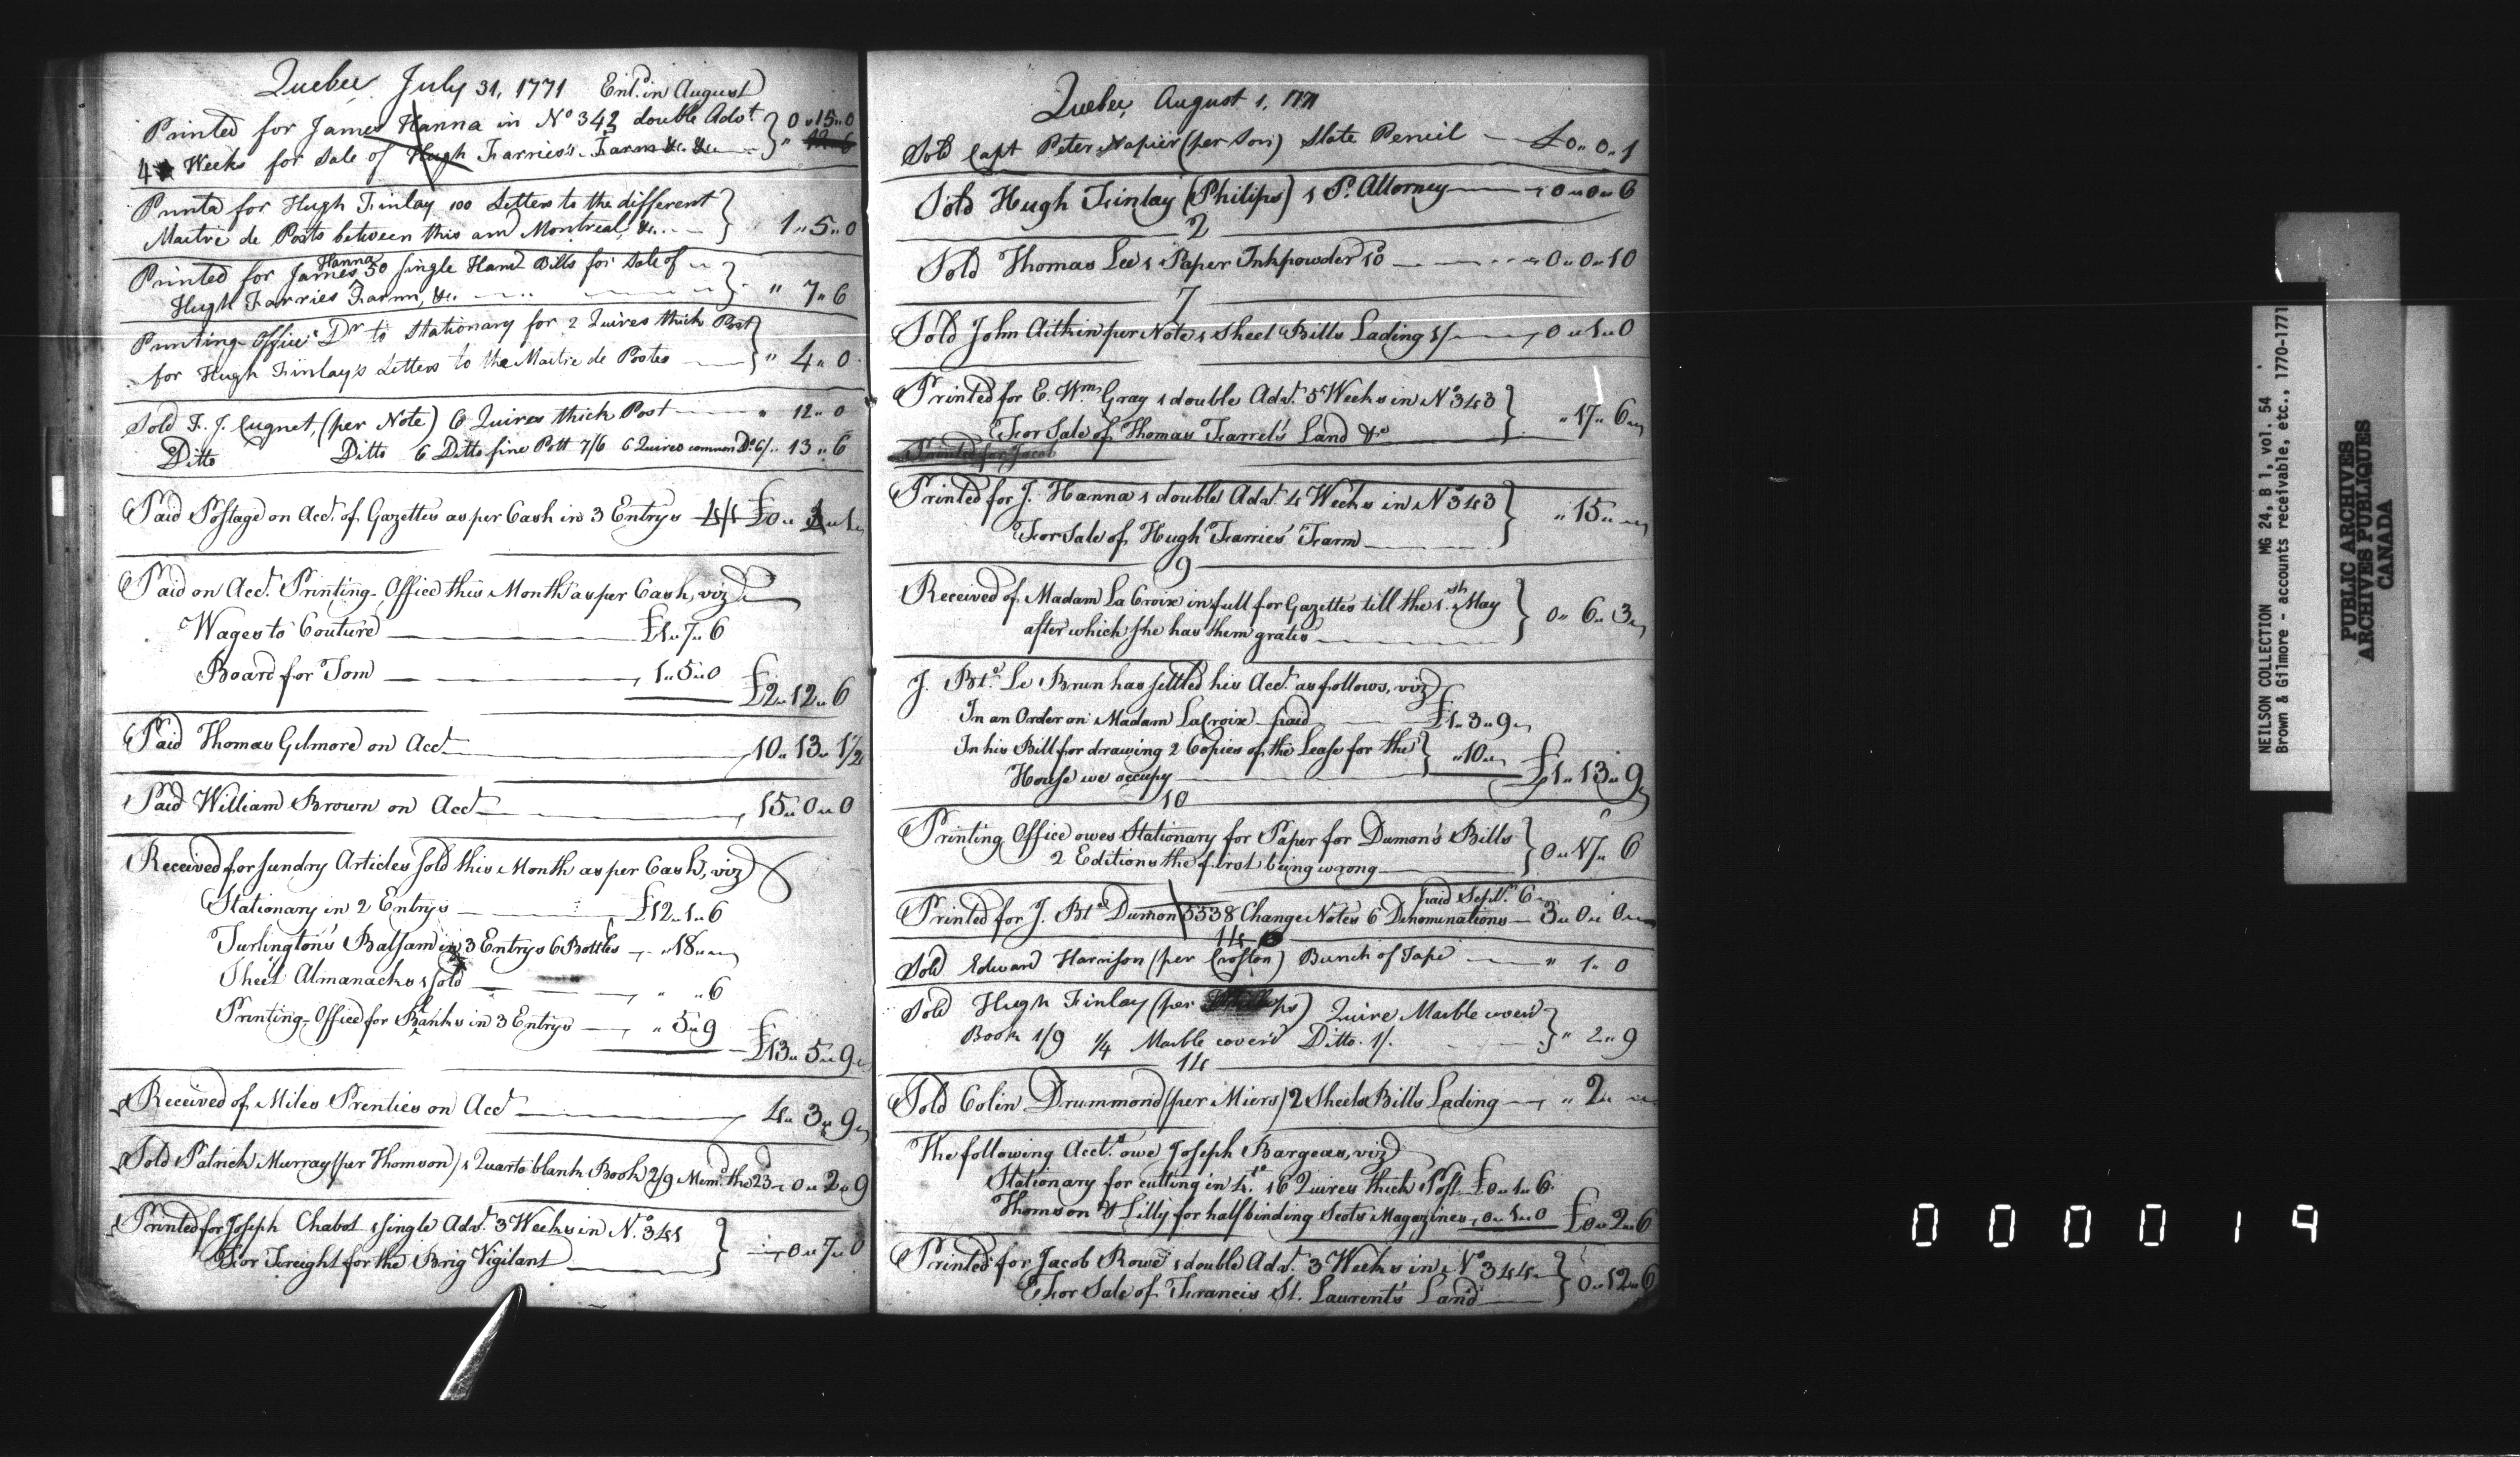 Quebec July 31, 1771 Ent.d in August
Printed for James Hanna in No 342 double Advt. } 0 " 15 " 0
4 Weeks for Sale of Hugh Farries's Farm &c. &c. } " 12 " 6
Printd for Hugh Finlay 100 Letters to the different }
Maitre de Posts between this and Montreal, &c. } 1 " 5 " 0
Hanna
Printed for James 50 single Hand Bills for Sale of }
Hugh Farries Farm, &c. } " 7 " 6
Printing-Office Dr to Stationary for 2 Quires thick Post }
for Hugh Finlay's Letters to the Maitre de Postes } " 4 " 0
Sold F. J. Cugnet, (per Note) 6 Quires thick Post " 12 " 0
Ditto Ditto 6 Ditto fine Pott 7/6 6 Quires common Do. 6/ " 13 " 6
Paid Postage on Acct. of Gazettes as per Cash in 3 Entrys 4/1 £0 " "
Paid on Acct. Printing-Office this Month as per Cash, viz
Wages to Couture £1 " 7 " 6
Board for Tom 1 " 5 " 0
£2 " 12 " 6
Paid Thomas Gilmore on Acct 10 " 13 " 1/2
Paid William Brown on Acct 15 " 0 " 0
Received for sundry Articles sold this Month as per Cash, viz
Stationary in 2 Entrys £12 " 1 " 6
Turlington's Balsam in 3 Entrys 6 Bottles " 18 "
Sheet Almanacks 1 sold " " 6
Printing-Office for Blanks in 3 Entrys " 5 " 9
£13 " 5 " 9
Received of Miles Prenties on Acct 4 " 3 " 9
Sold Patrick Murray (per Thomson) 1 Quarto blank Book 2/9 Mem. the 23 0 " 2 " 9
Printed for Joseph Chabot 1 single Advt. 3 Weeks in No. 341 }
For Freight for the Brig Vigilant } 0 " 7 " 0
Quebec, August 1, 1771
Sold Capt Peter Napier (per Son) Slate Pencil £0 " 0 " 1
Sold Hugh Finlay (Philips) 1 P. Attorney 0 " 0 " 6
2
Sold Thomas Lee 1 Paper Inkpowder 10 0 " 0 " 10
7
Sold John Aitkin per Note 1 Sheet Bills Lading 1/ 0 " 1 " 0
Printed for E. Wm. Gray 1 double Advt. 5 Weeks in No 343 }
For Sale of Thomas Farrel's Land &c } " 17 " 6
Printed for Jacob
Printed for J. Hanna 1 double Advt. 4 Weeks in No 343 }
For Sale of Hugh Farries' Farm } " 15 "
9
Received of Madam La Croix in full for Gazettes till the 1.st May }
after which she has them gratis } 0 " 6 " 3
J. Bte. Le Brun has settled his Acct. as follows, viz
In an Order on Madam LaCroix paid £1 " 3 " 9
In his Bill for drawing 2 Copies of the Lease for the }
House we occupy } " 10 " £1 " 13 " 9
10
Printing Office owes Stationary for Paper for Dumon's Bills }
2 Editions the first being wrong } 0 " 17 " 6
paid Sept. 6
Printed for J. Bte Dumon 3338 Change Notes 6 Denominations 3 " 0 " 0
14
Sold Edward Harrison (per Crofton) Bunch of Tape " 1 " 0
Sold Hugh Finlay (per Phillips) Quire Marble cover'd }
Book 1/9 1/4 Marble cover'd Ditto 1/. } " 2 " 9
14
Sold Colin Drummond (per Miers) 2 Sheets Bills Lading " 2 "
The following Acct.s owe Joseph Bargeas, viz
Stationary for cutting in 4.to 16 Quires thick Post £0 " 1 " 6
Thomson & Lilly for half binding Scots Magazines 0 " 1 " 0 £0 " 2 " 6
Printed for Jacob Rowe 1 double Advt. 3 Weeks in No 344 }
For Sale of Francis St. Laurent's Land } 0 " 12 " 6
NEILSON COLLECTION MG 24, B 1, vol. 54
Brown & Gilmore - accounts receivable, etc., 1770-1771
PUBLIC ARCHIVES
ARCHIVES PUBLIQUES
CANADA
000019